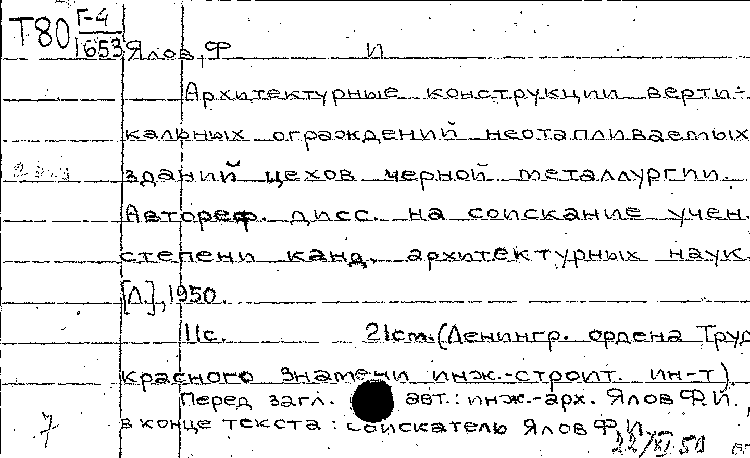 Т80 Г-4
1653 Ялов, Ф И
Архитектурные конструкции верти-
кальных ограждений неотапливаемых
зданий цехов черной металлургии.
Автореф. дисс. на соискание учен.
степени канд. архитектурных наук
[Л.], 1950.
11с. 21см. (Ленингр. ордена Труд
красного знамени инж.-строит. ин-т)
Перед загл. авт.: инж.-арх. Ялов Ф.И.,
7 в конце текста: соискатель Ялов Ф.И.
22/XI 50